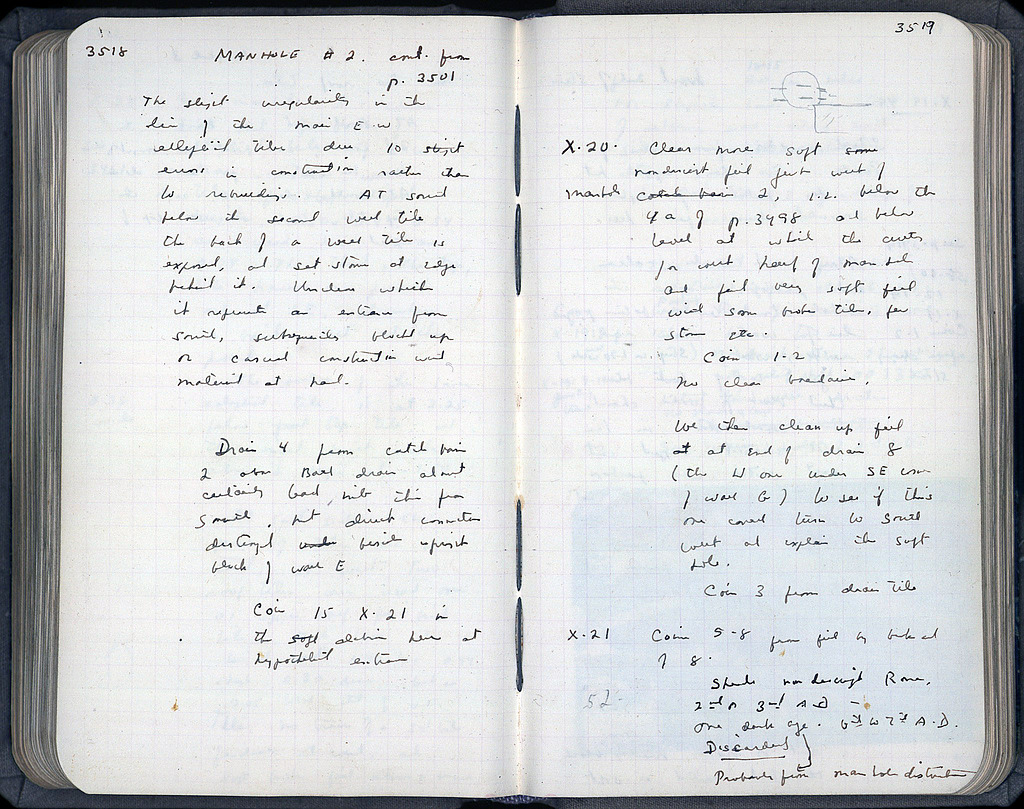 3518
MANHOLE # 2. cont. from
p. 3501
The slight irregularities in the
line of the main E-W
elliptical tiles due to slight
errors in construction rather than
to rebuilding. AT south
below the second west tile
the back of a west tile is
exposed, and set stone at edge
behind it. Unclear whether
it represents an entrance from
south, subsequently blocked up
or casual construction with
material at hand.
Drain 4 from catch basin
2 above Basil drain almost
certainly lead, into this from
South, but direct connection
destroyed under beside upright
block of wall E
Coin 15 X.21 in
the soft here at
hypothetical entrance
3519
X.20. Clear more soft some
nondescript fill just west of
Manhole catch basin 2, i.e. below the
4a of p. 3498 and below
level at which the cuts
for west half of manhole
and find very soft fill
with some broken tile, few
stones etc.
Coins 1-2
No clear boundaries.
We then clean up fill
at at end of drain 8
(the W one under SE corner
of wall G) to see if this
one could turn to South
west and explain the soft
hole.
Coin 3 from drain tile
X.21 Coins 5-8 from fill by end
of 8.
Sherds nondescript Roman,
2nd or 3rd A.D -
one dark age. 6th to 7th A.D.
Discarded
Probably from manhole disturbance
52